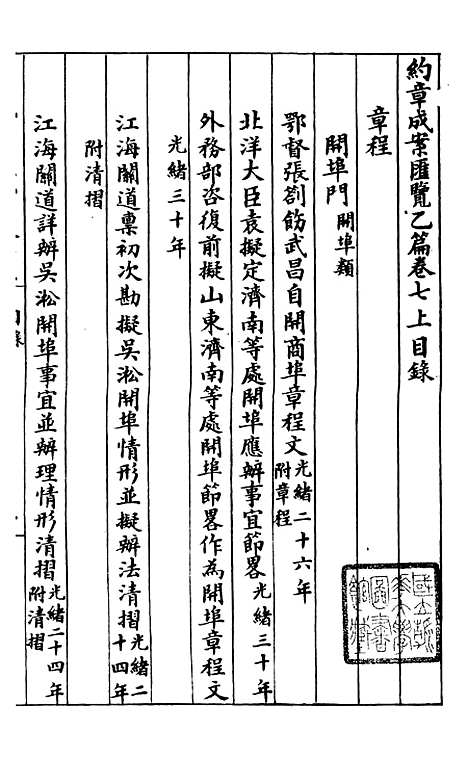 約章成案匯覽乙篇卷七上目錄
章程
開埠門 開埠類
鄂督張劄飭武昌自開商埠章程文 光緒二十六年 附章程
北洋大臣袁擬定濟南等處開埠應辦事宜節畧 光緒三十年
外務部咨復前擬山東濟南等處開埠節畧作為開埠章程文
光緒三十年
江海關道稟初次勘擬吳淞開埠情形並擬辦法清摺 光緒二十四年
附清摺
江海關道詳辦吳淞開埠事宜並辦理情形清摺 光緒二十四年 附清摺
國立北京大學圖書館藏